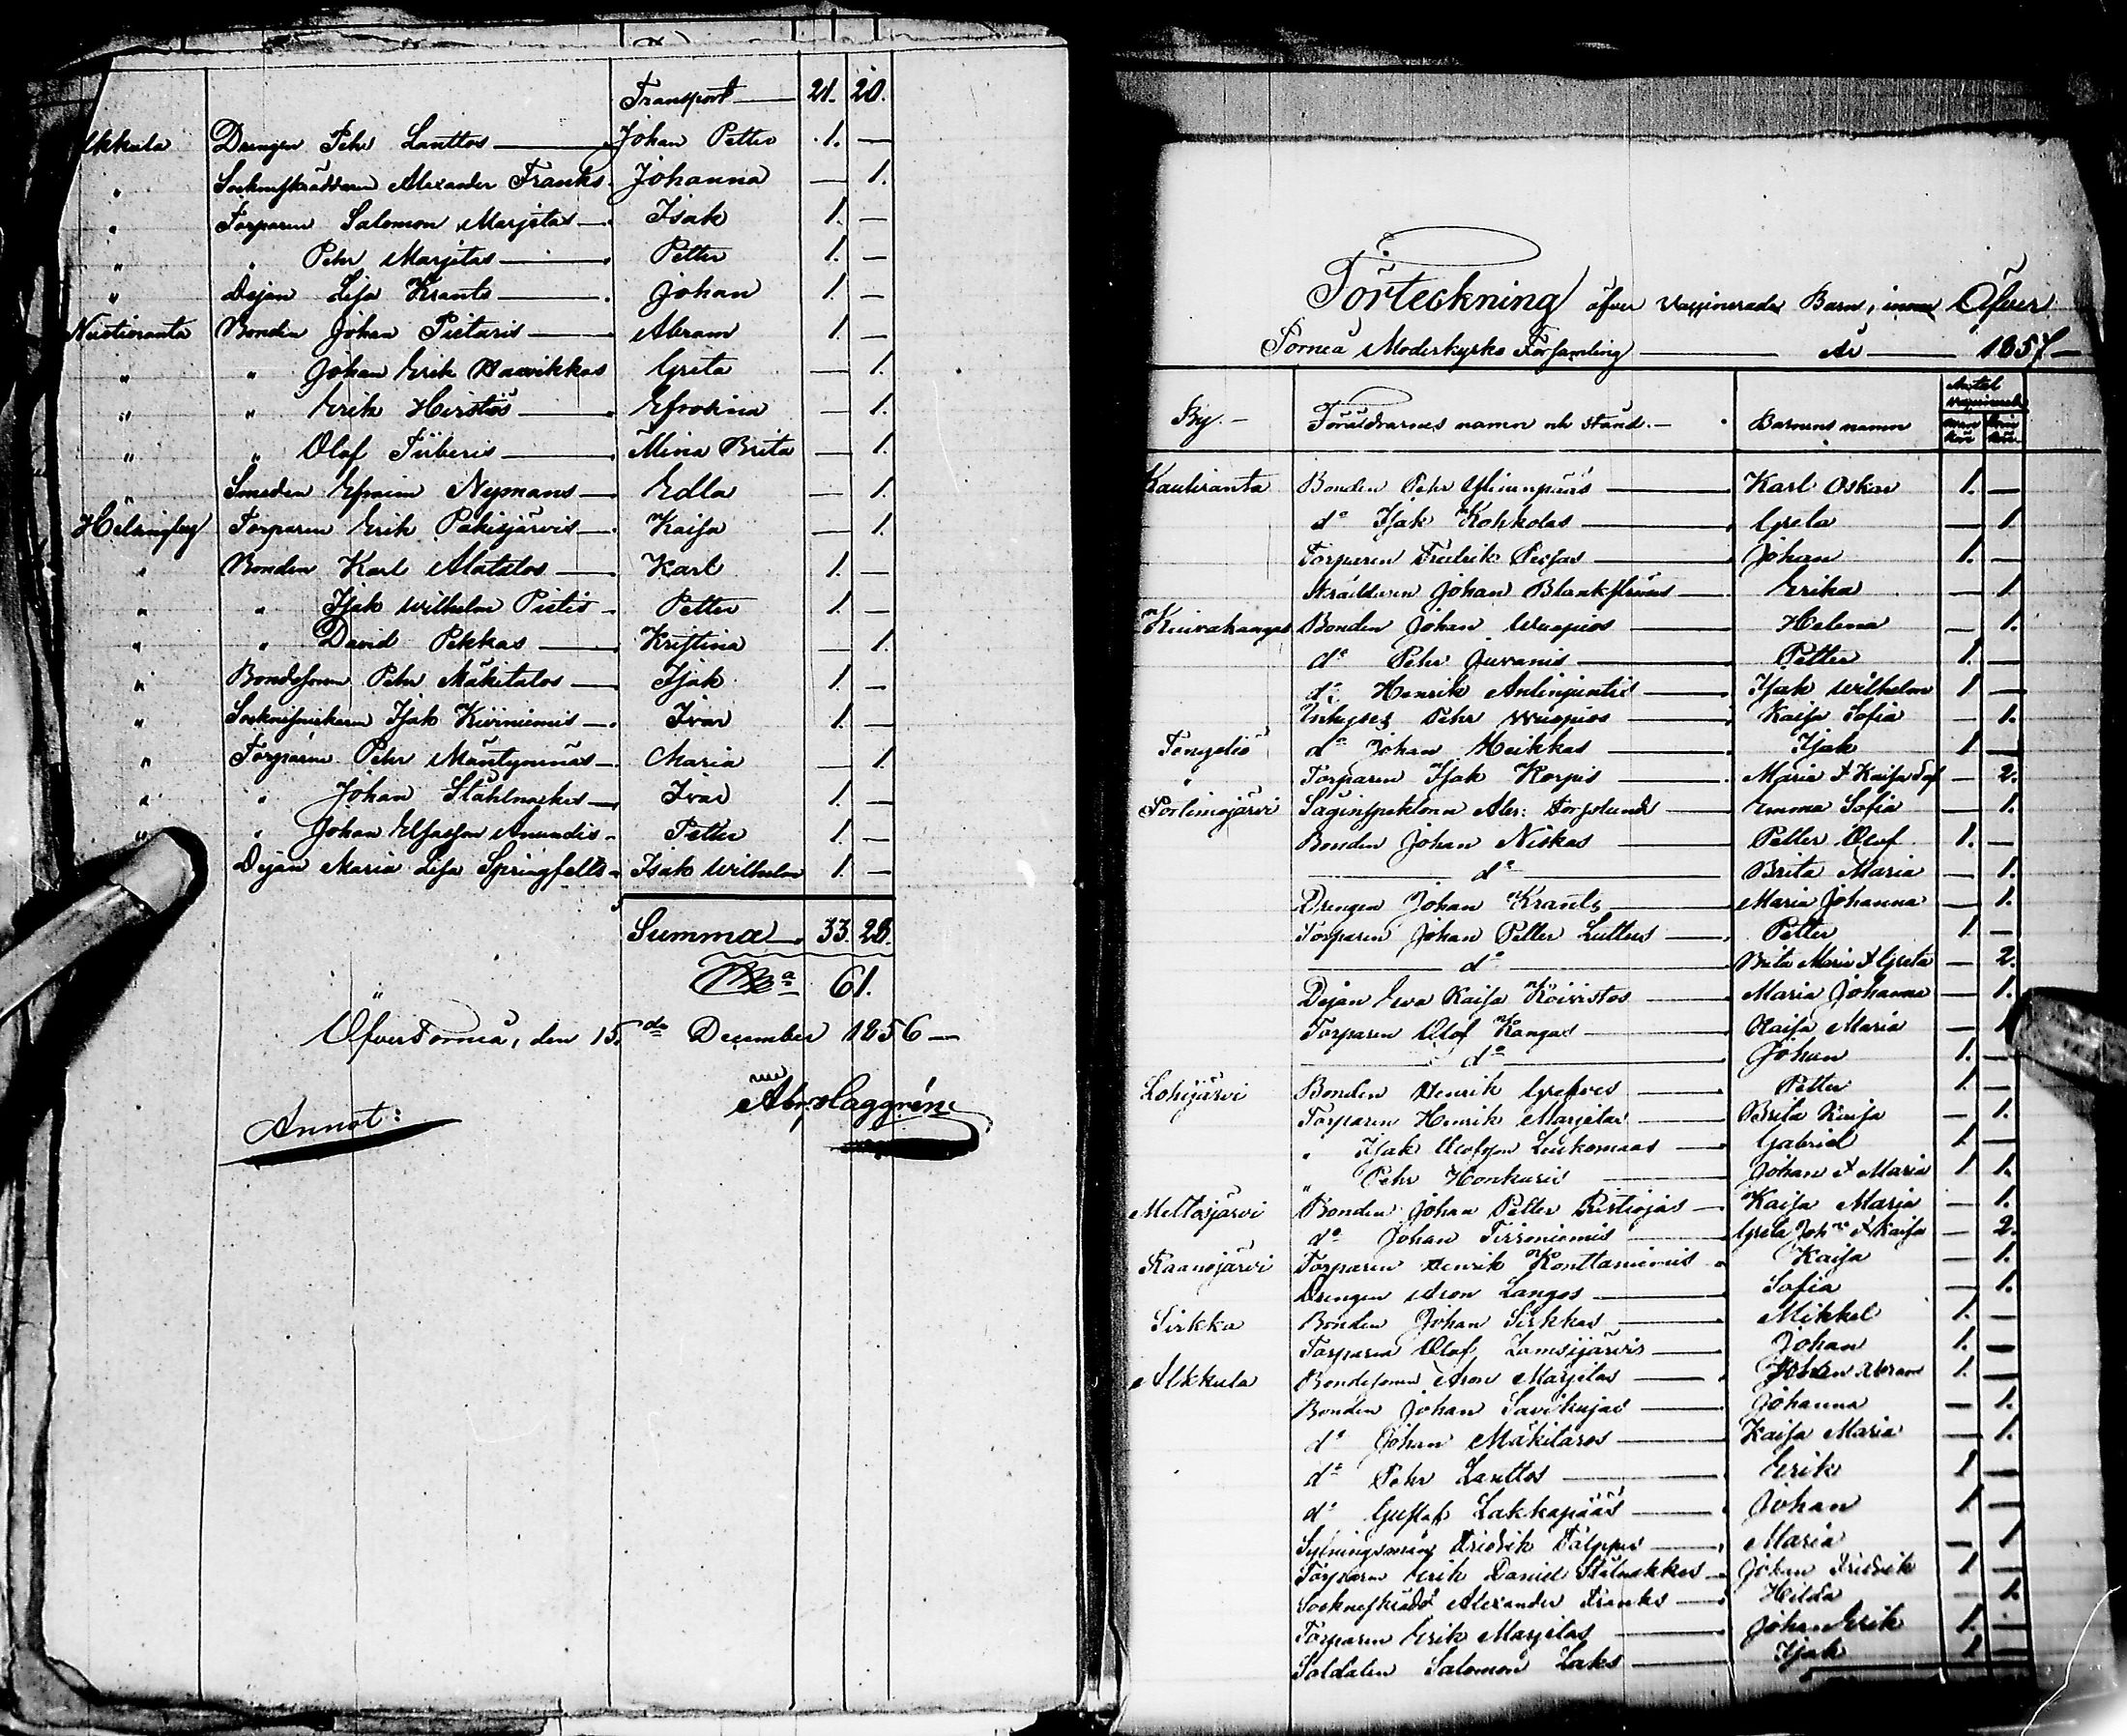 Transport 21. 20.
Alkkula Drengen Pehr Lanttos Johan Petter 1. —
" Socknesskräddaren Alexander Franks Johanna — 1.
" Torparen Salomon Marjetas Isak 1. —
" " Pehr Marjetas Petter 1. —
" Dejan Lisa Krants Johan 1. —
Nuotioranta Bonden Johan Pietaris Abram 1. —
" " Johan Erik Waarikkas Greta — 1.
" " Erik Hirstiös Efrosina — 1.
" " Olof Füberis Mina Brita — 1.
" Smeden Efraim Nymans Edla — 1.
Helsingby Torparen Erik Pakisjärvis Kaisa — 1.
" Bonden Karl Alatalos Karl 1. —
" " Isak Wilhelm Pietis Petter 1. —
" " David Pekkas Kristina — 1.
" Bondesonen Pehr Mäkitalos Isak 1. —
" Isak Kiviniemis Ivar 1. —
" Torparen Pehr Mäntyniemis Maria — 1.
" " Johan Stahlnackes Ivar 1. —
" " Johan Anundis Petter 1. —
Dejan Maria Lisa Springfelts Isak Wilhelm 1. —
Summa 33. 28.
61.
ÖfverTorneå, den 15de December 1856 —
Abr. Haggrén
Annot:
Förteckning öfver Vaccinerade Barn, inom Öfver
Torneå Moderkyrko Församling — År — 1857 —
Antal
By. Föräldrarnes namn och stånd. Barnens namn
Kauliranta Bonden Pehr Ylinenpääs Karl Oskar 1. —
do Isak Kohkolas Greta — 1.
Torparen Fredrik Johan 1. —
Skräddaren Johan Erika — 1.
Kuivakangas Bonden Johan Wuopios Helena — 1.
do Pehr Juvanis Petter 1. —
do Henrik Isak Wilhelm 1 —
Inhyses Pehr Wuopios Kaisa Sofia — 1.
Tengeliö do Johan Heikkas Isak 1 —
" Torparen Isak Korpis Maria & Kaisa Sof — 2.
Portimojärvi Saginspektorn Alex: Emma Sofia — 1.
Bonden Johan Niskas Petter Olof 1. —
do Brita Maria — 1.
Drengen Johan Krants Maria Johanna — 1.
Torparen Johan Petter Luttus Petter 1 —
do Brita Maria & Greta — 2.
Dejan Eva Kaisa Koivistos Maria Johanna — 1.
Torparen Olof Kangas Kaisa Maria — 1
do Johan 1. —
Lohijärvi Bonden Henrik Grefves Petter 1 —
Torparen Henrik Marjetas Brita Kaisa — 1.
" Isak Olofsson Liukomaas Gabriel 1 —
" Pehr Honkaris Johan & Maria 1 1.
Meltosjärvi Bonden Johan Petter Ristiojas Kaisa Maria — 1.
do Johan Tirroniemis Greta Joha & Kaisa — 2.
Raanojärvi Torparen Henrik Konttaniemis Kaisa — 1.
Drengen Aron Langos Sofia — 1.
Sirkka Bonden Johan Sirkkas Mikkel 1. —
Torparen Olof Lamsijärvis Johan 1. —
Alkkula Bondesonen Aron Marjetas Johan Abram 1. —
Bonden Johan Savikujas Johanna — 1.
do Johan Mäkitaros Kaisa Maria — 1.
do Pehr Lanttos Erik 1 —
do Gustaf Lakkapääs Johan 1 —
Sytningsman Fridrik Maria — 1
Torparen Erik Daniel Stålnakkes Johan Fridrik 1 —
Alexander Franks Hilda — 1.
Torparen Erik Marjetas Johan Erik 1. —
Soldaten Salomon Laks Isak 1 —